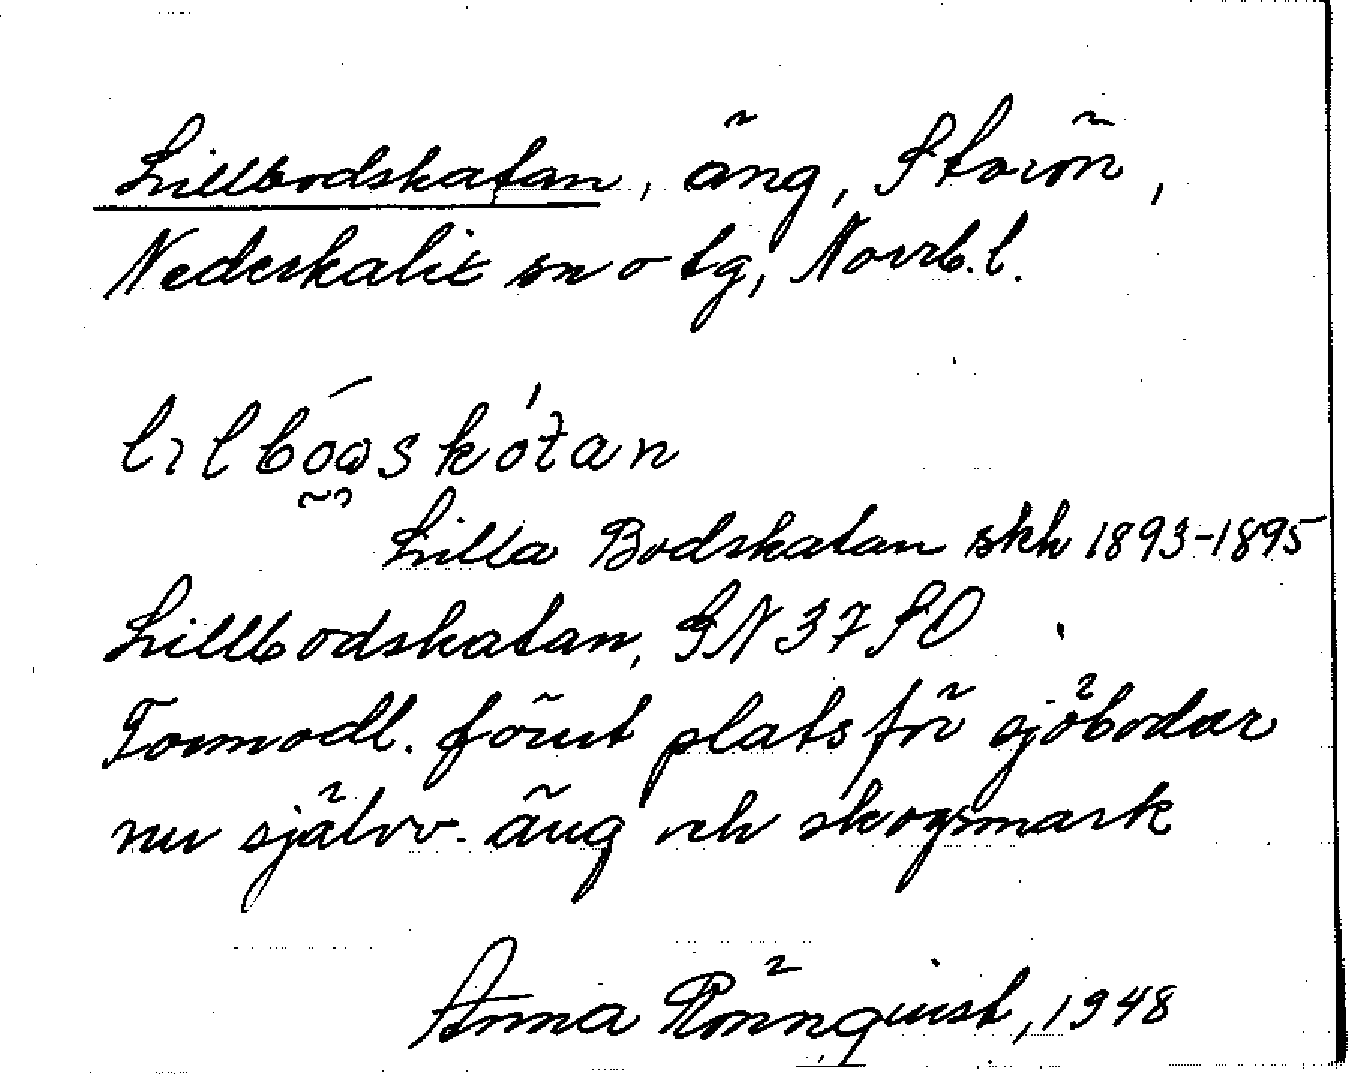 Lillbodskatan, äng, Storön,
Nederkalix sn o tg, Norrb.l.
lilboɑskótan
Lilla Bodskatan skh 1893-1895
Lillbodskatan, GN 37 SO
Tomodl. förut plats för sjöbodar
nu självv. äng och skogsmark
Anna Rönnquist, 1948